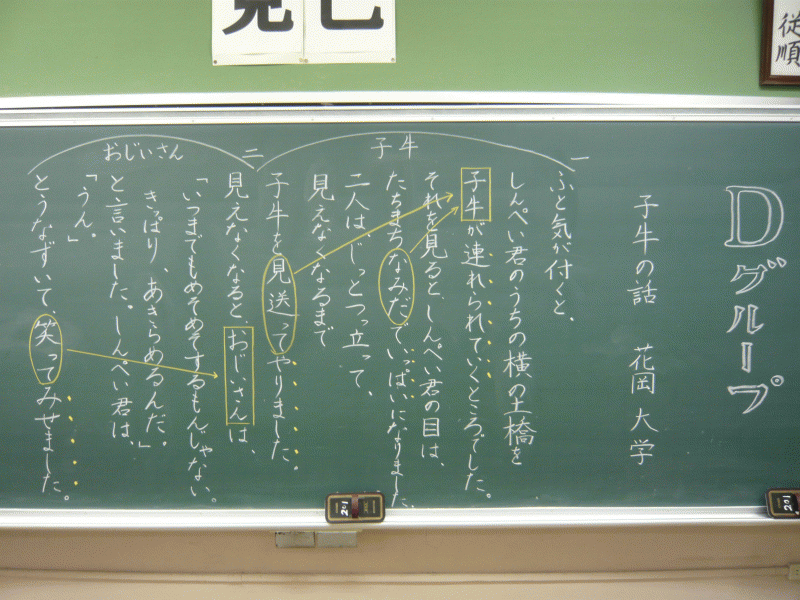 Dグループ
子牛の話　花岡大学
一
ふと気が付くと、
しんぺい君のうちの横の土橋を
子牛が連れられていくところでした。
それを見ると、しんぺい君の目は、
たちまちなみだでいっぱいになりました。
二人は、じっとつっ立って、
見えなくなるまで
子牛を見送ってやりました。
子牛
二
見えなくなると、おじいさんは、
「いつまでもめそめそするもんじゃない。
きっぱり、あきらめるんだ。」
と言いました。しんぺい君は、
「うん。」
とうなずいて、笑ってみせました。
おじいさん
従順
201
201